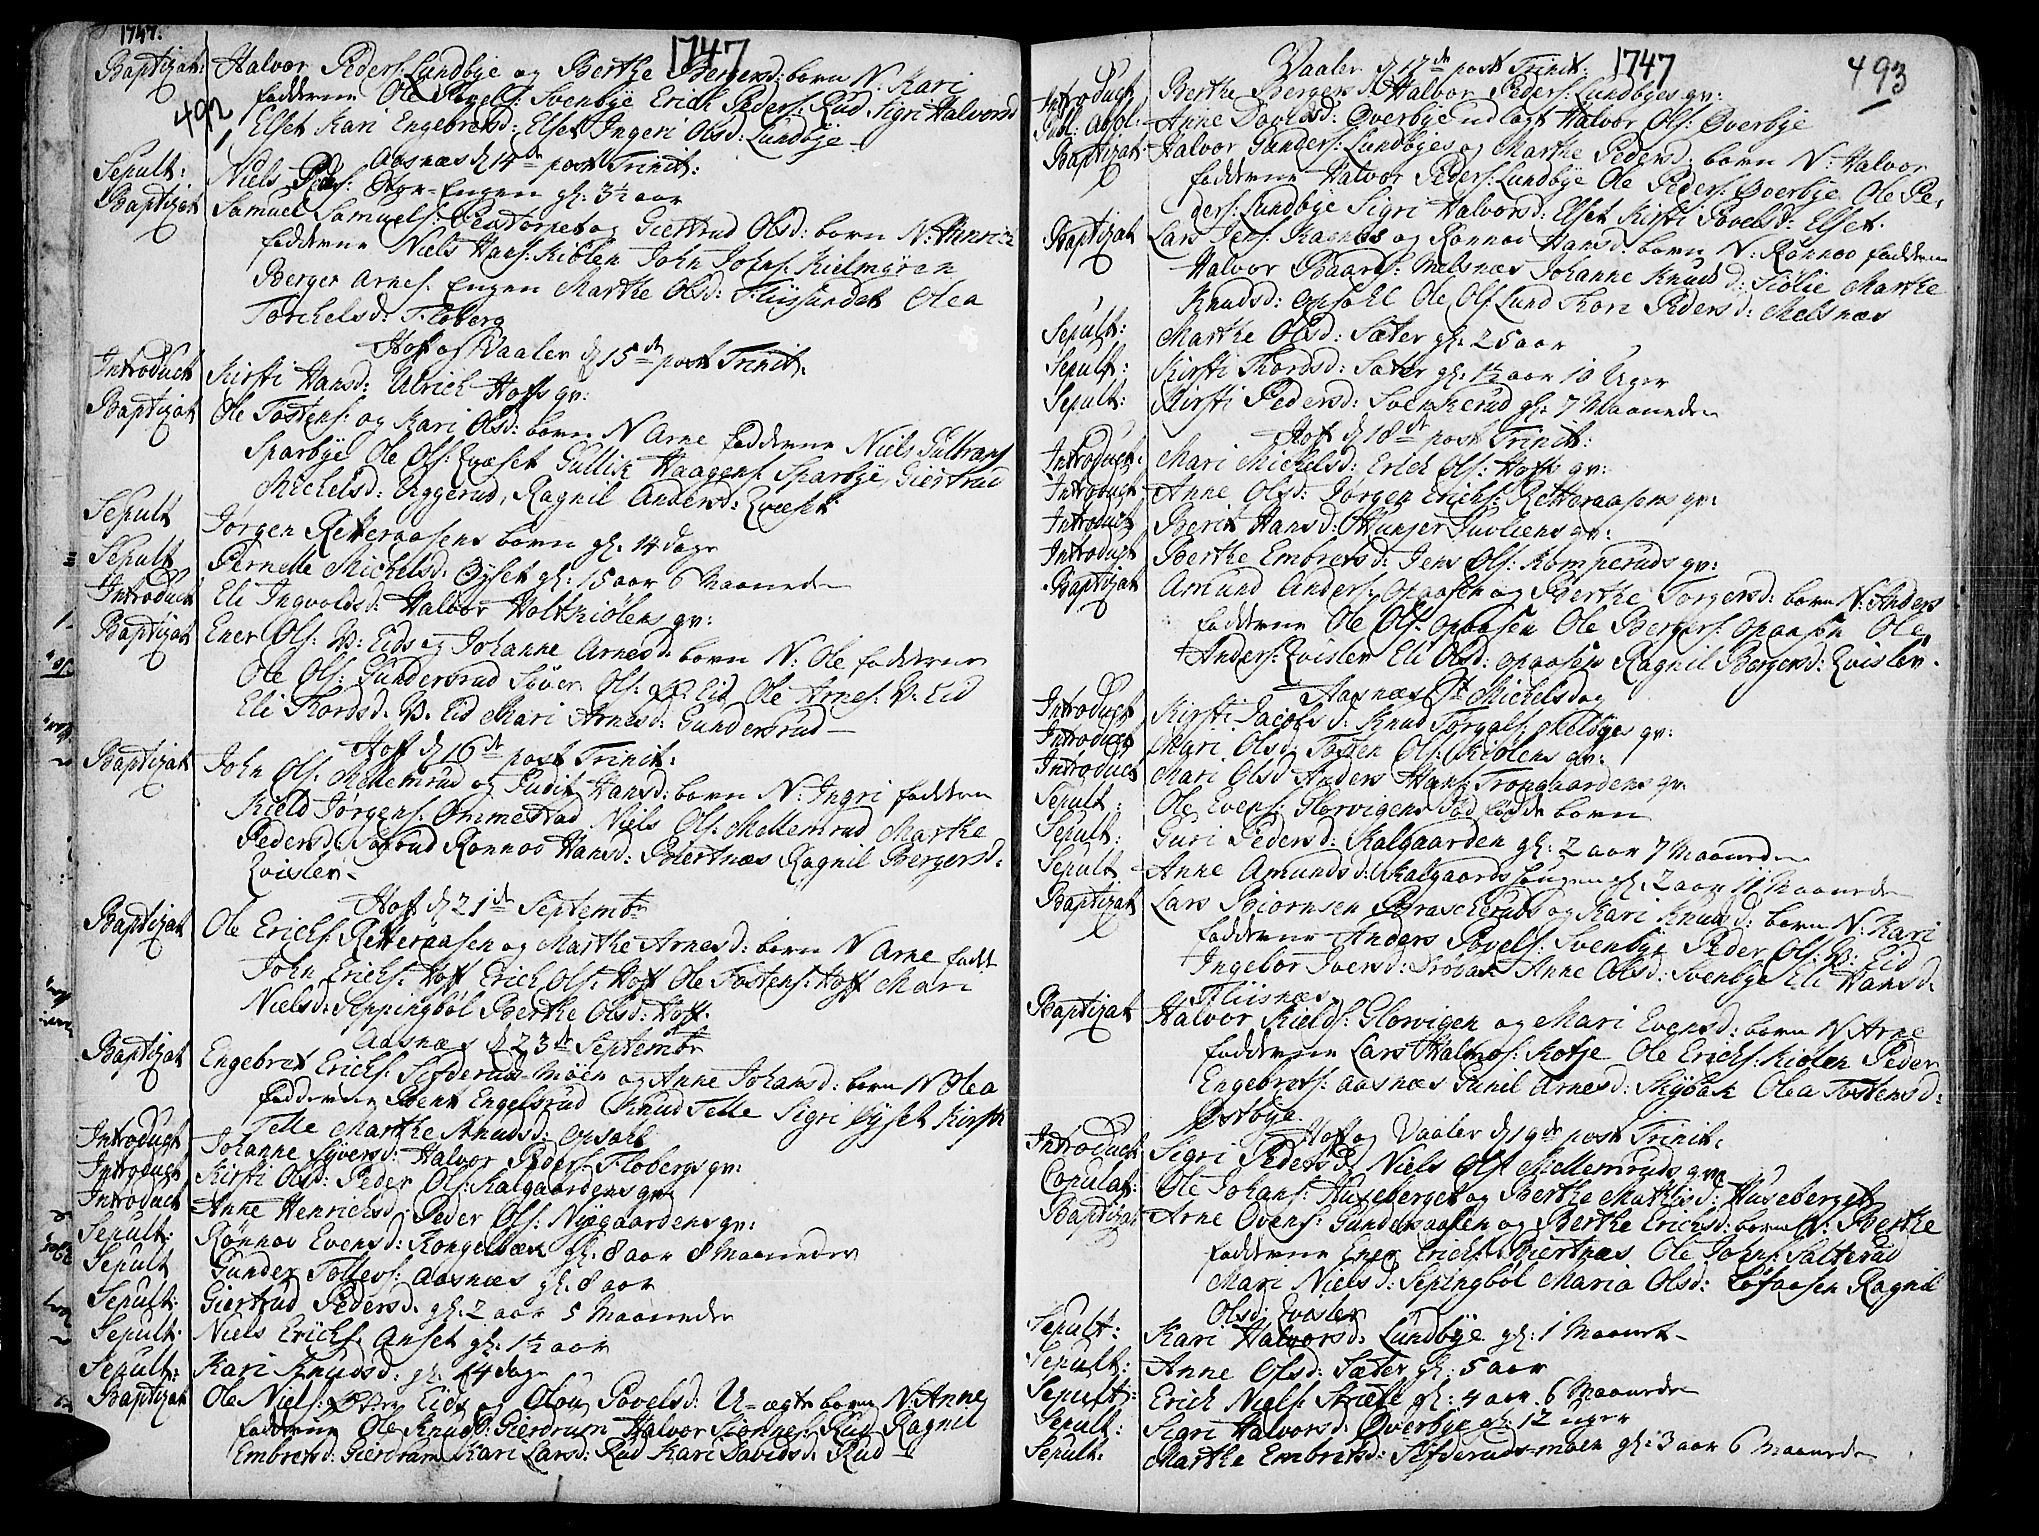 1747.
1747
492
Baptizat: Halvor Peders: Lundbye og Berthe Bergersd: barn N. Kari
fadderne Ole Povels: Svenbye Erich Peders: Rud Sigri Halvorsd
Elset Kari Engebretsd: Elset Ingeri Olsd: Lundbye
Aasnæs d 14de post Trinit:
Sepult: Niels Peders: Stor-Engen gl: 3½ aar
Baptizat Samuel Samuels: Pestorpet og Giertrud Olsd: barn N: Henrich
fadderne Niels Hans: Kiølen John Johns: Kielmyren
Berger Arnes: Engen Marthe Olsd: Fliisundet Olea
Torchelsd: Floberg
Hof og Vaaler d 15de post Trinit:
Introduct Kirsti Hansd: Ulrich Hoffs qv:
Baptizat Ole Tostens: og Kari Olsd: barn N Arne fadderne Niels Gultrans
Sparbye Ole Ols: Qvæset Gullik Haagens: Sparbye, Giertrud
Michelsd: Uggerud, Ragnil Andersd: Qvæset
Sepult Jørgen Retteraasens barn gl: 14 dage
Sepult Pernelle Michelsd: Øyset gl: 15 aar 6 Maaneder
Introduct Eli Ingvoldsd: Halvor Holtkiølens qv:
Baptizat Ener Ols: V: Eids og Johanne Arnesd: barn N: Ole fadderne
Ole Ols: Gundersrud Syver Ols: V: Eid Ole Arnes: V: Eid
Eli Thordsd: V: Eid Mari Arnesd: Gundersrud
Hoff d 16de post Trinit:
Baptizat John Ols: Mellemrud og Judit Hansd: barn N: Ingri faddern
Kield Jørgens: Ommestad Niels Ols: Mellemrud Marthe
Pedersd: Sætrud Rønnov Hansd: Biertnæs Ragnil Bergersd:
Qvisler
Hoff d 21de Septembr
Baptizat Ole Erichs: Retteraasen og Marthe Arnesd: barn N Arne fadd
John Erichs: Hoff Erich Ols: Hoff Ole Tostens: Hoff Mari
Nielsd: Seppingbøl Berthe Olsd: Hoff
Aasnæs d 23de Septembr
Baptizat Engebret Erichs: Sifderud-Moen og Anne Johansd: barn N Olea
fadderne Bent Engelsrud Knud Telle Sigri Øyset Kirsti
Telle Marthe Knudsd: Opsahl
Introduct Johanne Syversd: Halvor Peders: Flobergs qv:
Introduct Kirsti Olsd: Peder Ols: Kalgaardens qv:
Introduct Anne Henrichsd: Peder Ols: Nygaardens qv:
Sepult: Rønnov Evensd: Kongelbæk gl: 8 aar 8 Maaneder
Sepult Gunder Tollevs: Aasnæs gl: 8 aar
Sepult: Giertrud Pedersd: gl: 2 aar 5 Maaneder
Sepult: Niels Erichs: Anset gl: 1½ aar
Sepult: Kari Knudsd: gl: 14 dage
Baptizat Ole Niels: Eids og Olou Povelsd: U-ægte barn N: Anne
fadderne Ole Knuds: Gierdrum Halvor Rud Ragnil
Embretsd: Gierdrum Kari Larsd: Rud Kari Davidsd: Rud
1747
493
Vaaler d 17de post Trinit:
Introduct Berthe Bergersd: Halvor Peders: Lundbyes qv:
Publ: Absol: Anne Davidsd: Øverbye udlagt Halvor Ols: Øverbye
Baptizat Halvor Gunders: Lundbyes og Marthe Pedersd: barn N: Halvor
fadderne Halvor Peders: Lundbye Ole Peders: Øverbye Ole Pe,
ders: Lundbye Sigri Halvorsd: Elset Kirsti Povelsd: Elset.
Baptizat Lars Jens: og Rønnov Hansd: barn N: Rønnov faddern
Halvor Baards: Melsnæs Johanne Knudsd: Siølie Marthe
Knudsd: Opsahl Ole Ols: Lund Thori Pedersd: Melsnæs
Sepult: Marthe Olsd: Sæter gl: 25 aar
Sepult: Kirsti Thordsd: Sæter gl: 1½ aar 10 Uger
Sepult: Kirsti Pedersd: Svenkerud gl: 7 Maaneder
Hoff d 18de post Trinit:
Introduct: Mari Michelsd: Erich Ols: Hoffs qv:
Introduct Anne Olsd: Jørgen Erichs: Retteraasens qv:
Introduct Berit Hansd: qv:
Introduct Berthe Embretsd: Jens Ols: Komperuds qv:
Baptizat Amund Anders: Opaasen og Berthe Torgersd: barn N: Anders
fadderne Ole Ols: Opaasen Ole Bergers: Opaasen Ole
Anders: Qvisler Eli Olsd: Opaasen Ragnil Bergersd: Qvisler.
Aasnæs St Michelsdag
Introduct Kirsti Jacobsd: Knud Torgals: Melbyes qv:
Introduct Mari Olsd: Tosten Ols: Kiølens qv:
Introduct Mari Olsd Anders Hans: Trongaardens qv:
Sepult: Ole Evens: Glorvigens Død fødde barn
Sepult: Guri Pedersd: Kalgaarden gl: 2 aar 7 Maaneder
Sepult Anne Amundsd: Kalgaards Engen gl: 2 aar 11 Maaneder
Baptizat Lars Biørnsen Braskeruds og Kari Knudsd: barn N: Kari
fadderne Anders Povels: Svenbye Peder Ols: V: Eid
Ingebor Iversd: Anne Olsd: Svenbye Eli Hansd:
Fliisnæs
Baptizat Halvor Kields: Glorvigen og Mari Evensd: barn N Arne
fadderne Lars Halvors: Kotje Ole Erichs: Kiølen Peder
Engebrets: Aasnæs Gunil Arnesd: Skybak Olea Tostensd:
Østbye
Hoff og Vaaler d 19de post Trinit:
Introduct Sigri Pedersd: Niels Ols: Mellemruds qv:
Copulat: Ole Johans: Huseberget og Berthe Mathisd: Huseberget
Baptizat Arne Ovens: Gundersaasen og Berthe Erichsd: barn N: Berthe
fadderne Ener Erichs: Biertnæs Ole Johns: Sætterud
Mari Nielsd: Sepingbøl Maria Olsd: Løfaasen Ragnil
Olsd: Qvisler
Sepult: Kari Halvorsd: Lundbye gl: 1 Maanet
Sepult: Anne Olsd: Sæter gl: 5 aar
Sepult: Erich Niels: Stræte gl: 4 aar 6 Maaneder
Sepult: Sigri Halvorsd: Øverbye gl: 12 uger
Sepult: Marthe Embretsd: Sifderuds-moen gl: 3 aar 6 Maaneder